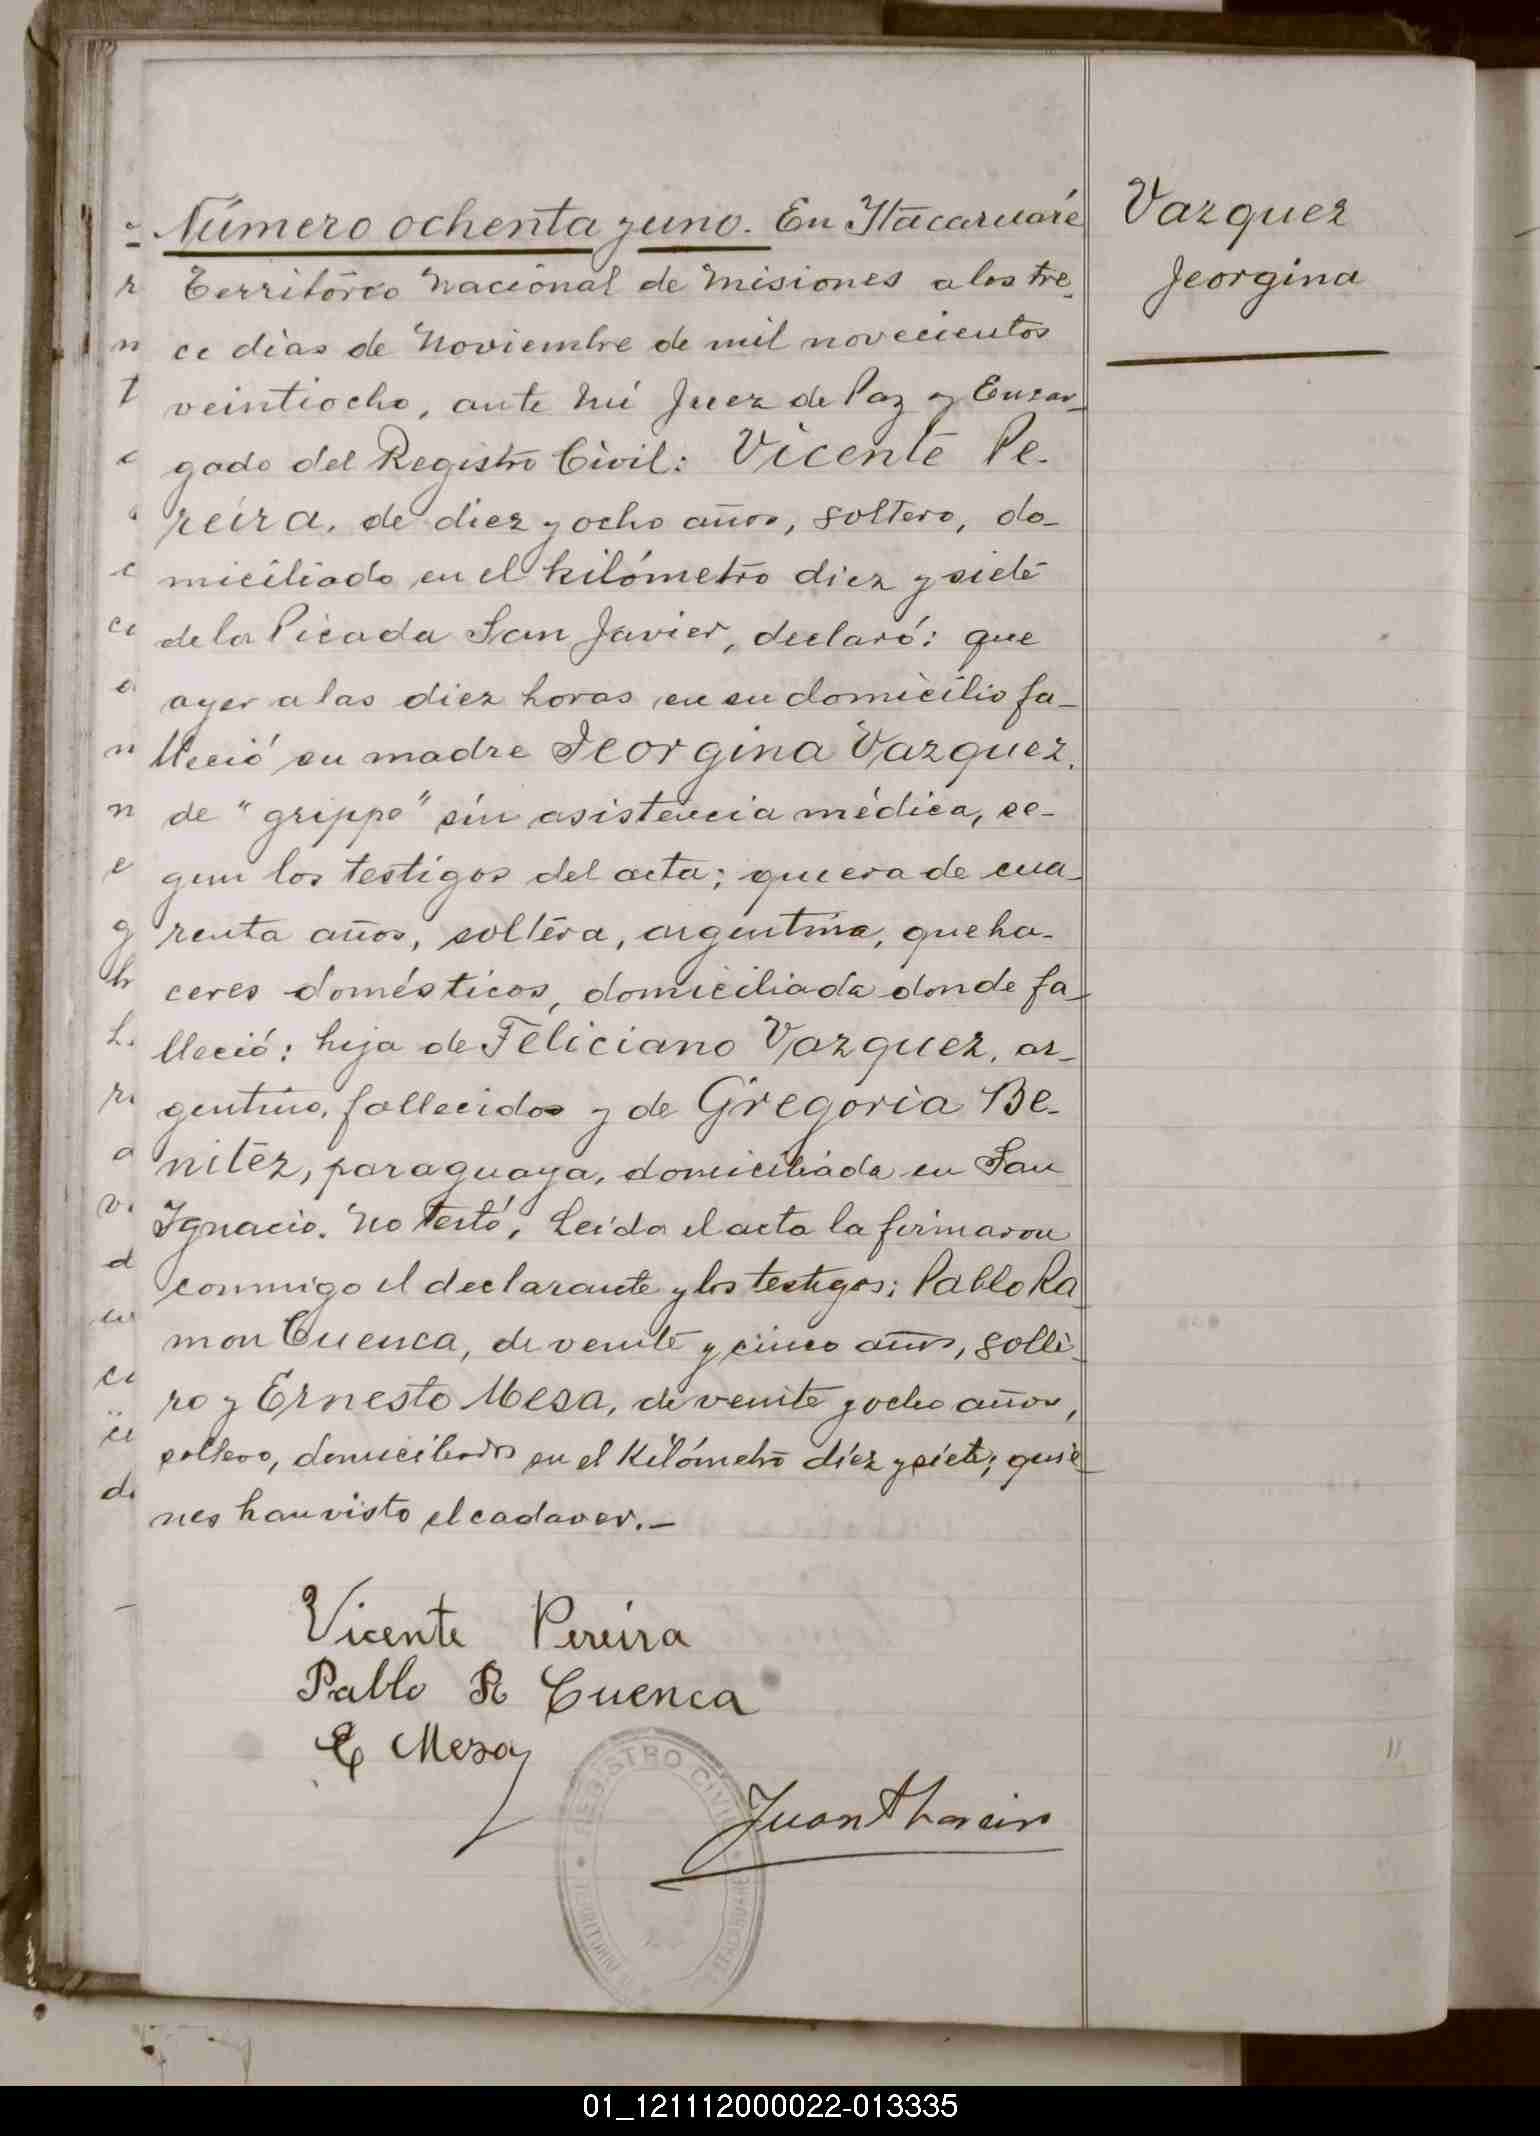 Número ochenta y uno. En Itacaruaré
Vazquez
Jeorgina
Territorio Nacional de Misiones a los tre-
ce dias de Noviembre de mil novecientos
veintiocho, ante mi Juez de Paz y Encar-
gado del Registro Civil: Vicente Pe-
reira, de diez y ocho años, soltero, do-
miciliado en el kilómetro diez y siete
de la Picada San Javier, declaró: que
ayer a las diez horas en su domicilio fa-
lleció su madre Jeorgina Vazquez,
de "grippe" sin asistencia médica, se-
gun los testigos del acta; que era de cua-
renta años, soltera, argentina, queha-
ceres domésticos, domiciliada donde fa-
lleció: hija de Feliciano Vazquez, ar-
gentino, fallecidos y de Gregoria Be-
nitez, paraguaya, domiciliada en San
Ignacio. No testó. Leida el acta la firmaron
conmigo el declarante y los testigos: Pablo Ra-
mon Cuenca, de veinte y cinco años, solte-
ro y Ernesto Mesa, de veinte y ocho años,
soltero, domiciliados en el kilómetro diez y siete; quie-
nes han visto el cadaver.—
Vicente Pereira
Pablo R Cuenca
E Mesa
REGISTRO CIVIL
Juan
01_121112000022-013335